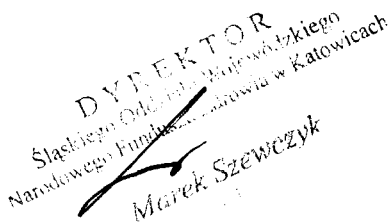 DYREKTOR
Śląskiego Oddziału Wojewódzkiego
Narodowego Funduszu Zdrowia w Katowicach
Marek Szewczyk